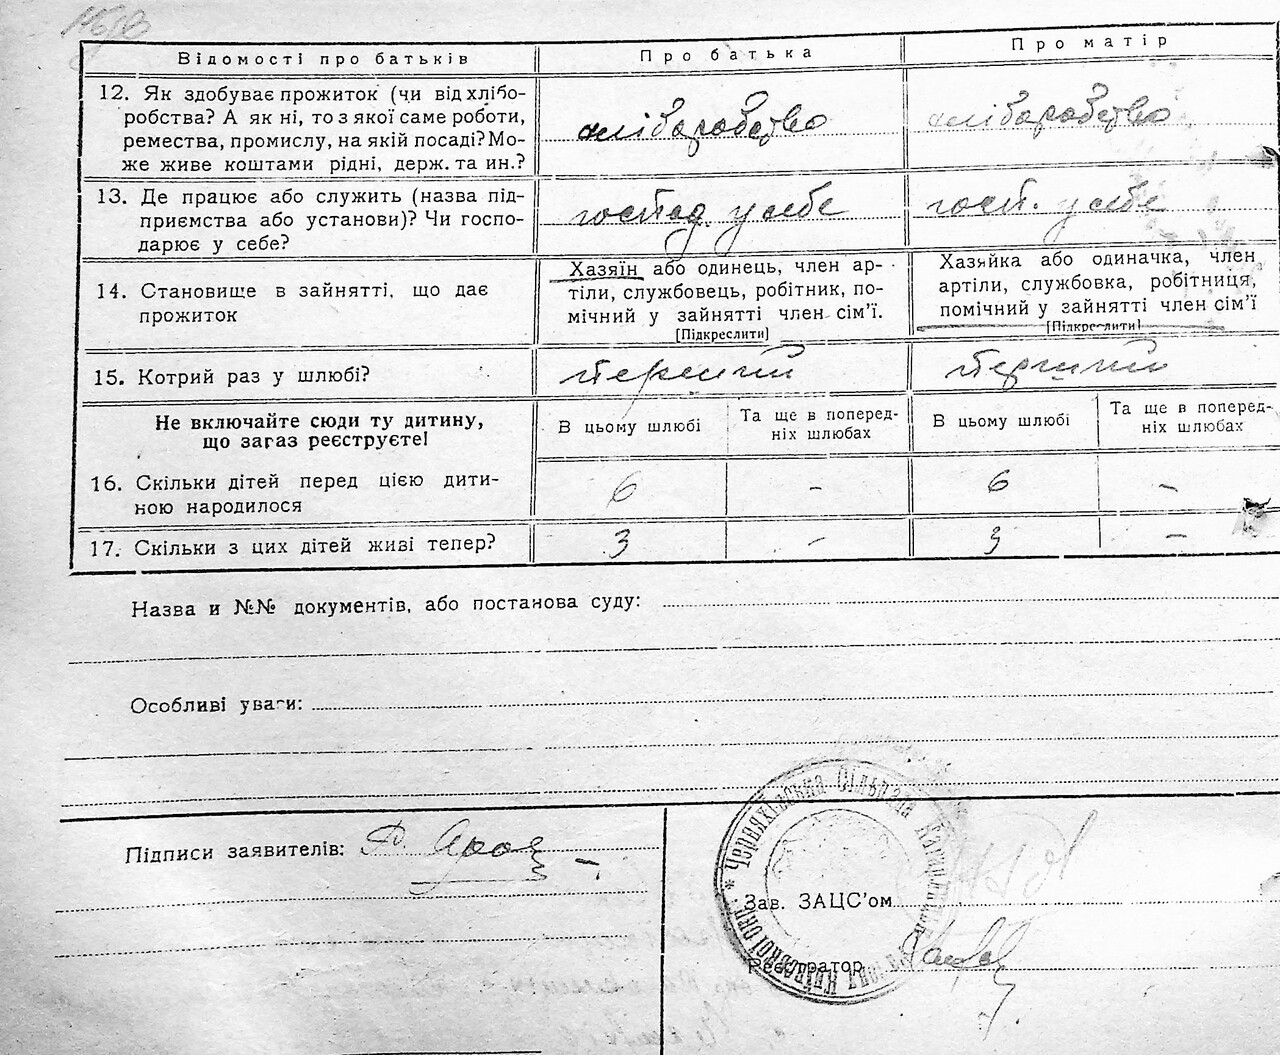 Відомості про батьків
Про батька
Про матір
12. Як здобуває прожиток (чи від хлібо-
робства? А як ні, то з якої саме роботи,
ремества, промислу, на якій посаді? Мо-
же живе коштами рідні, держ. та ин.?
хліборобство
хліборобство
13. Де працює або служить (назва під-
приємства або установи)? Чи госпо-
дарює у себе?
господ. у себе
госп. у себе
14. Становище в зайнятті, що дає
прожиток
Хазяїн або одинець, член ар-
тіли, службовець, робітник, по-
мічний у зайнятті член сім'ї.
[Підкреслити]
Хазяйка або одиначка, член
артіли, службовка, робітниця,
помічний у зайнятті член сім'ї
[Підкреслити]
15. Котрий раз у шлюбі?
перший
перший
Не включайте сюди ту дитину,
що загаз реєструєте!
В цьому шлюбі
Та ще в поперед-
ніх шлюбах
В цьому шлюбі
Та ще в поперед-
ніх шлюбах
16. Скільки дітей перед цією дити-
ною народилося
6
-
6
-
17. Скільки з цих дітей живі тепер?
3
-
3
-
Назва и №№ документів, або постанова суду:
Особливі уваги:
Підписи заявителів:
Черняхівська Сільрада Кагарлицьк
Київської окр.
Зав. ЗАЦС'ом
Реєстратор